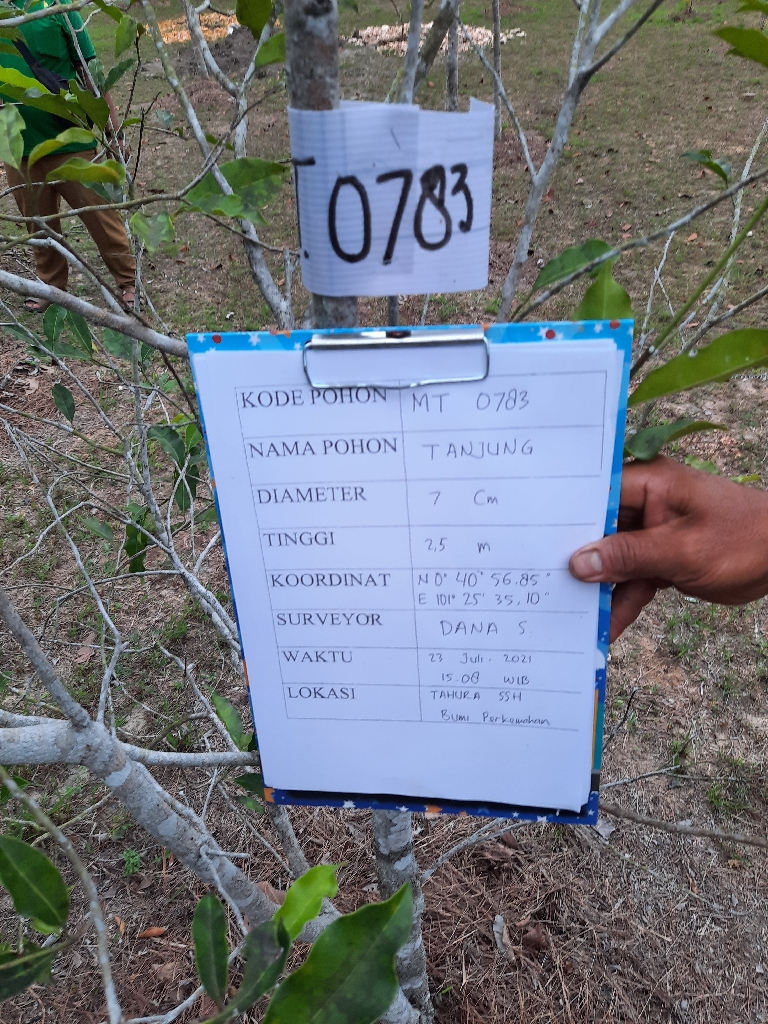 T. 0783
KODE POHON MT 0783
NAMA POHON TANJUNG
DIAMETER 7 Cm
TINGGI 2,5 m
KOORDINAT N 0° 40' 56.85"
E 101° 25' 35,10"
SURVEYOR DANA S
WAKTU 23 Juli 2021
15.08 WIB
LOKASI TAHURA SSH
Bumi Perkemahan